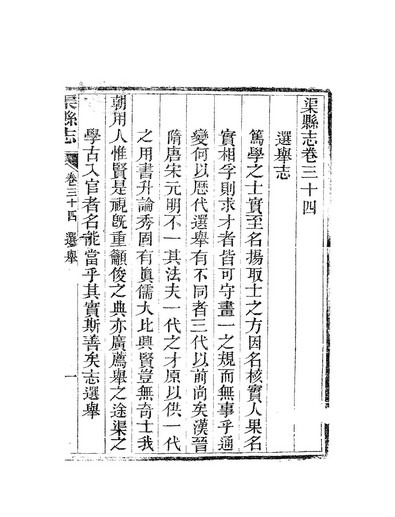 渠縣志卷三十四
選舉志
篤學之士實至名揚取士之方因名核實人果名
實相孚則求才者皆可守畫一之規而無事乎通
變何以歴代選舉有不同者三代以前尚矣漢晉
隋唐宋元明不一其法夫一代之才原以供一代
之用書升論秀固有眞儒大比興賢豈無奇士我
朝用人惟賢是視旣重籲俊之典亦廣薦舉之途渠之
學古入官者名能當乎其實斯善矣志選舉
渠縣志
卷三十四
選舉
一